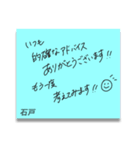 いつも
的確なアドバイス
ありがとうございます!!
もう一度
考えてみます!!
石戸